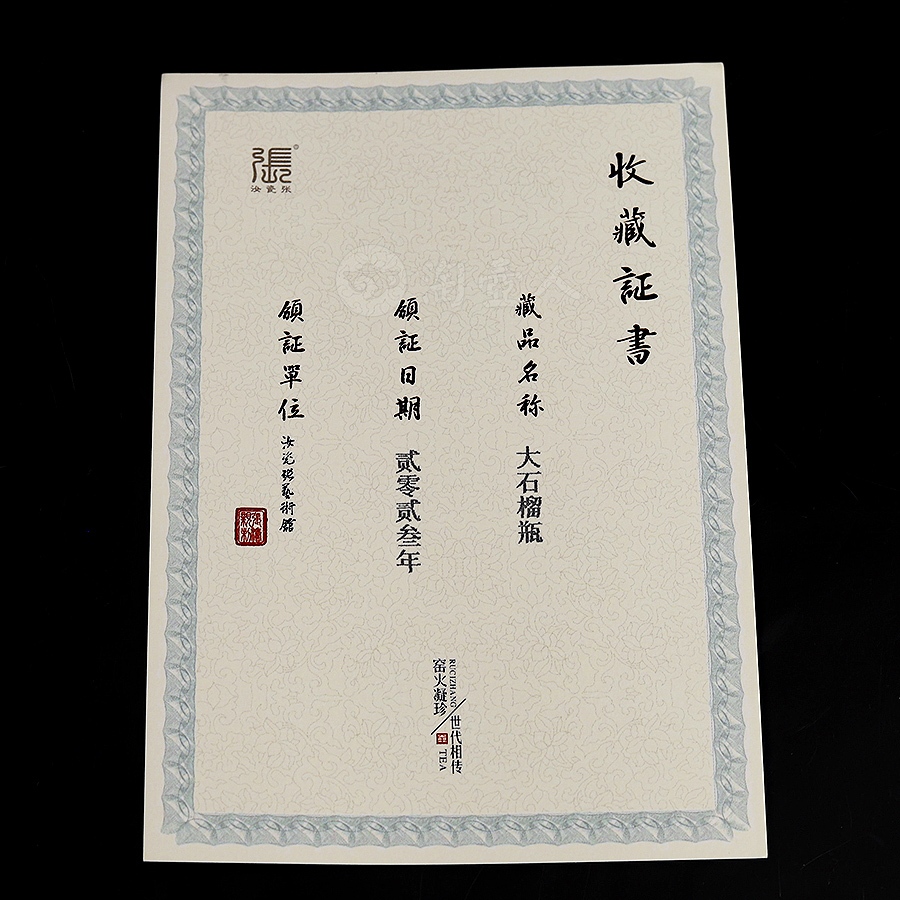 收藏証書
藏品名称 大石榴瓶
領証日期 贰零贰叁年
領証單位 汝瓷張藝術館
張
汝瓷张
窑火凝珍
RUCIZHANG
世代相传
TEA